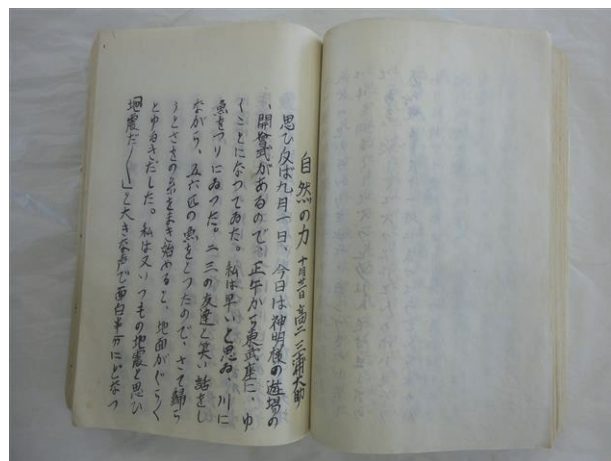 自然の力 十月廿一日 高二 三浦大助
思ひ反ば九月一日、今日は神明後の遊場の
、開會式があるので、正午から東武座に、ゆ
くことになつてゐた。私は早いと思ゐ、川に
魚をつりにゐつた。二三の友達と笑い話をし
ながら、五六匹の魚をとつたので、さて歸ら
うとさをの糸をまき始めると、地面がぐらく
とゆるぎだした。私は又いつもの地震と思ひ
地震だ〱」と大きな声で面白半分にどなつ